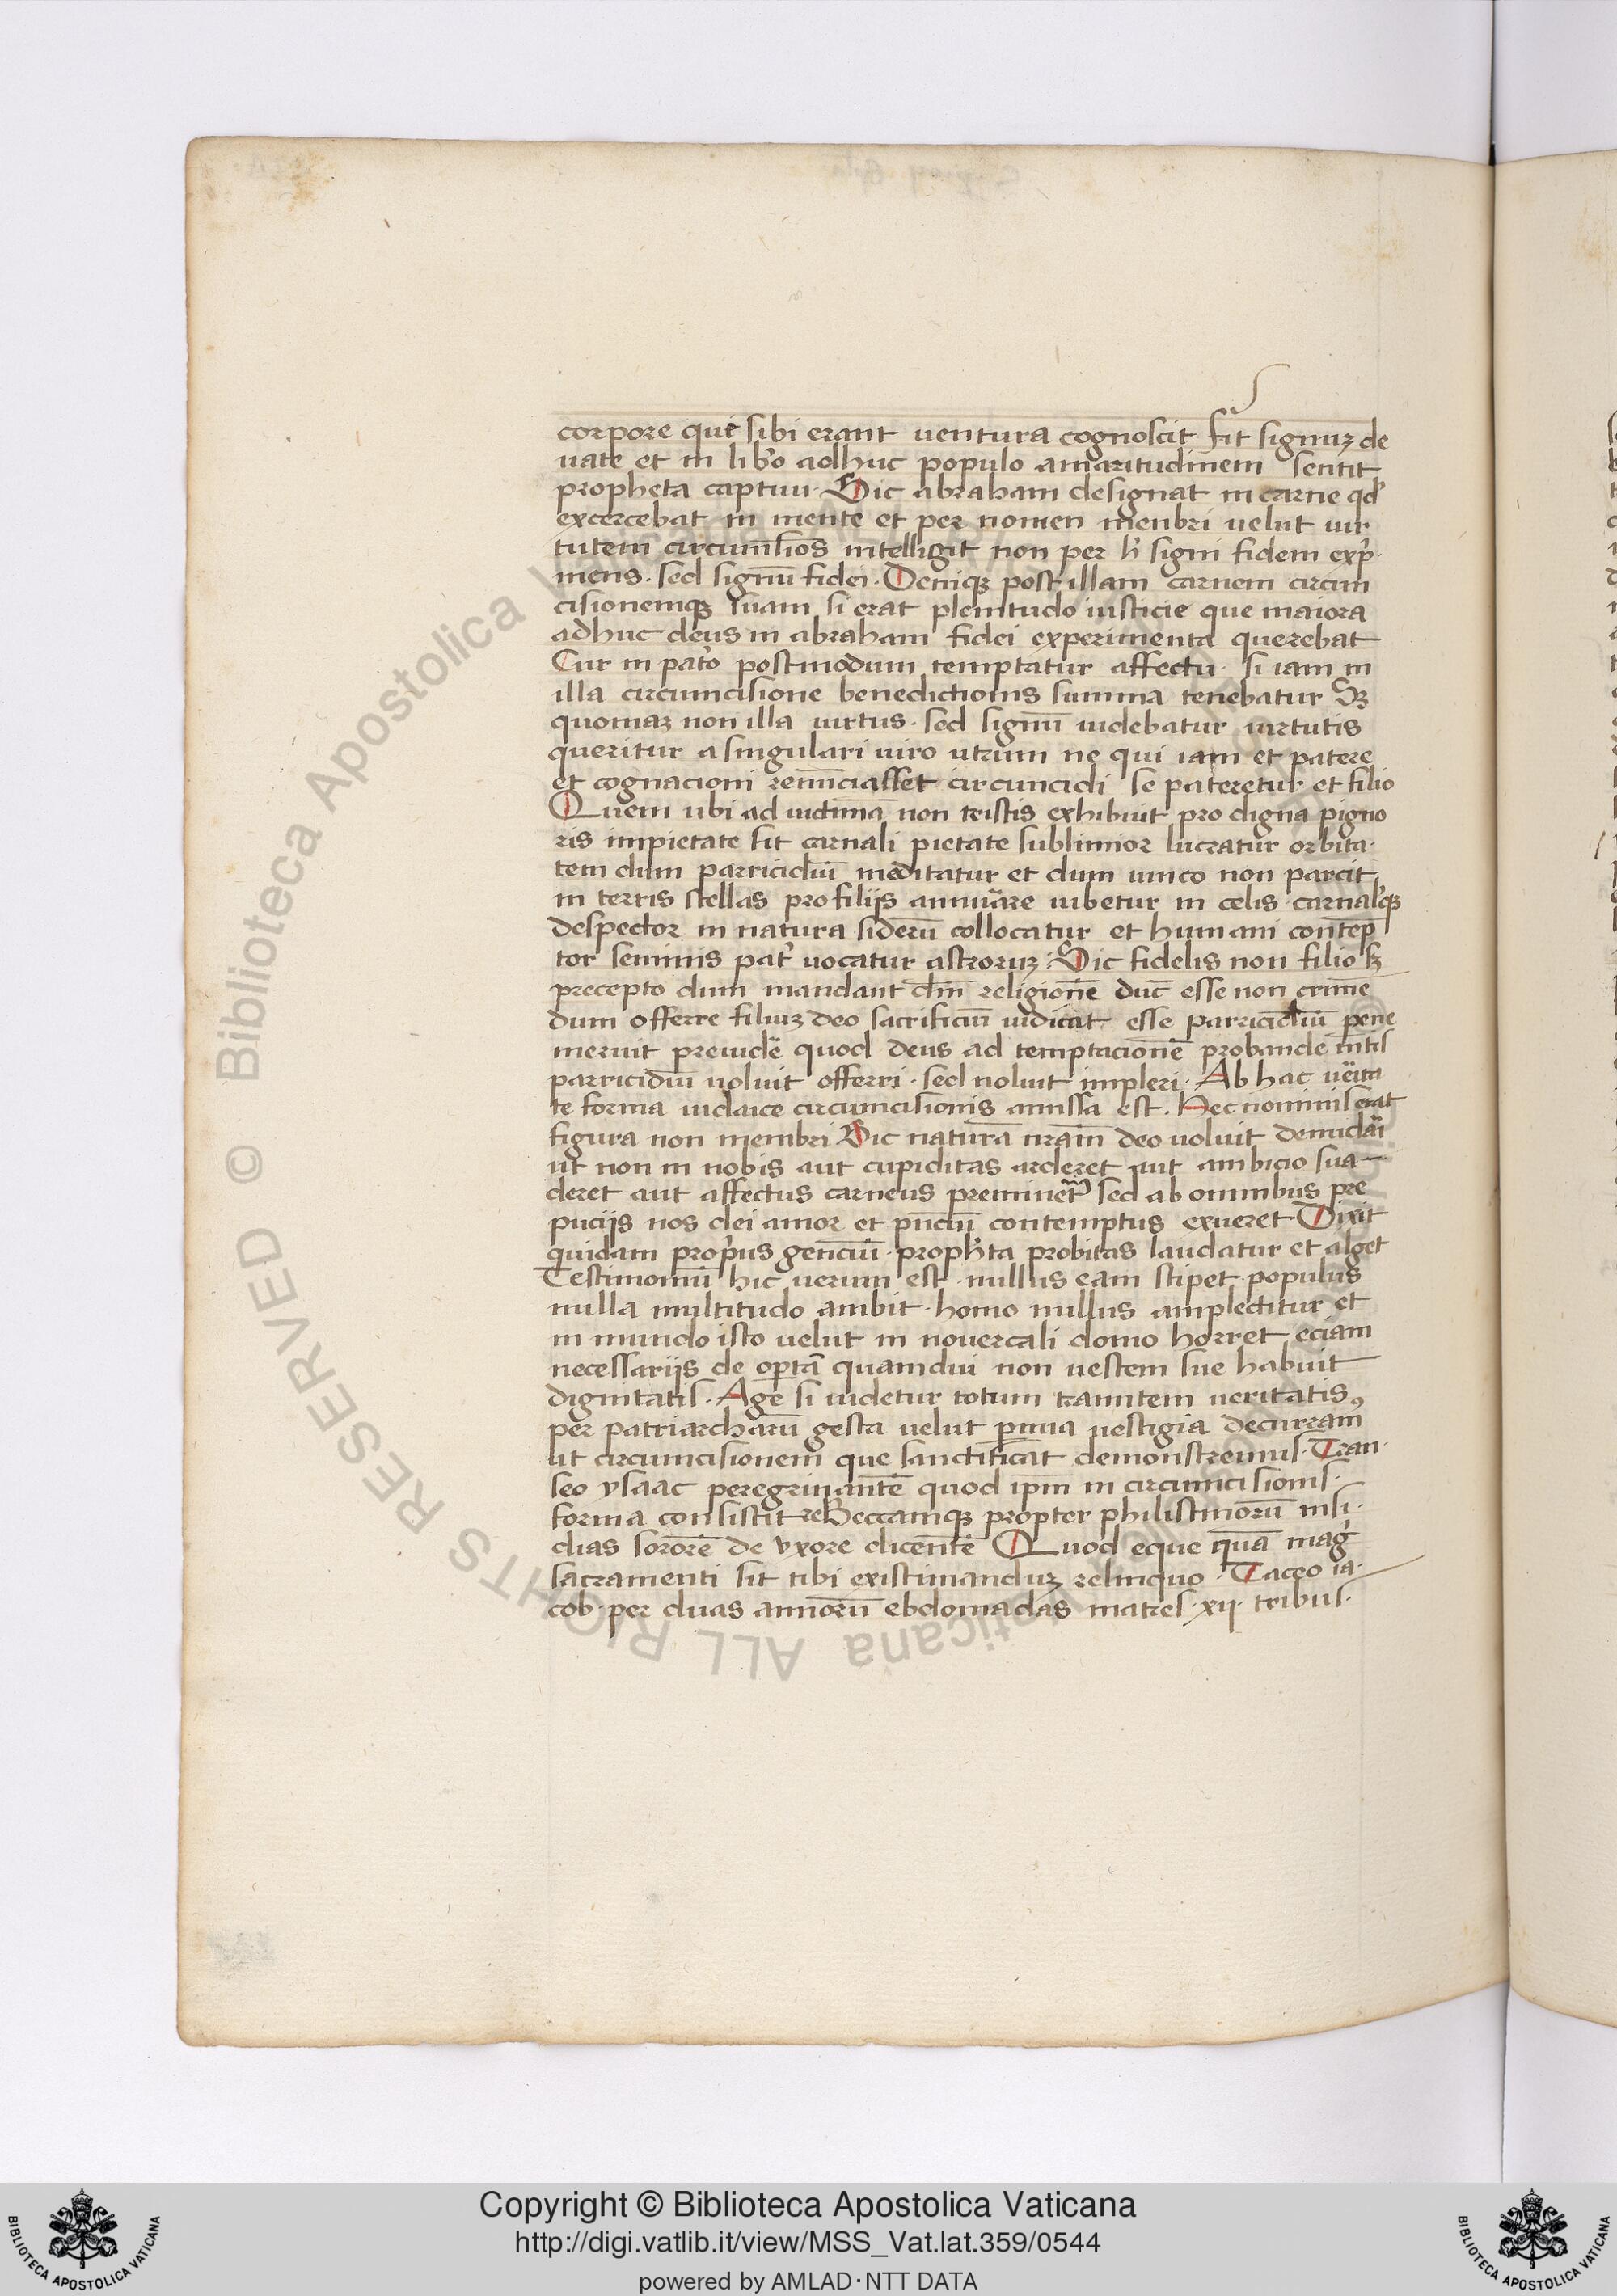 corpore que sibi erant ventura cognoscit fit signuꝫ de
vate et in lib̾o adhuc populo amaritudinem sentit
propheta captivi. Sic abraham designat in carne qd̾
excercebat in mente et per nomen menbri velut vir
tutem circum̄sios intelligit non per h̾ signi fidem exp̾
mens. sed signū fidei. Deniqꝫ post illam carnem circum
cisionemqꝫ suam si erat plenitudo iusticie que maiora
adhuc deus in abraham fidei experimenta querebat
Cur in pat̾o postmodum temptatur affectu. si iam in
illa circumcisione benedictionis summa tenebatur Sꝫ
quoniaꝫ non illa virtus. sed signū videbatur virtutis
queritur a singulari viro utrum ne qui iam et patere
et cognacioni renūciasset circuncidi se pateretur et filio
Quem ubi ad victimā non tristis exhibuit pro digna pigno
ris impietate fit carnali pietate sublimior lucratur orbita
tem dum parricidiū meditatur et dum unico non parcit
in terris stellas pro filijs annuāre iubetur in celis carnal̾qꝫ
despector in natura siderū collocatur et humani contēp
tor seminis pat̾ vocatur astroruꝫ. Sic fidelis non filio sꝫ
precepto dum mandant dm̄ religionē duc̄ esse non crimē
dum offerre filiuꝫ deo sacrificiū iudicat esse parricidiū pene
meruit previdē quod deus ad temptacionē probande m̄tis
parricidiū voluit offerri. sed noluit impleri. Ab hac v̄ita
te forma iudaice circumcisionis amissa est. Hec nominis erat
figura non membri Sic naturā nrām deo voluit denudāi
ut non in nobis aut cupiditas arderet aut ambicio sua
deret aut affectus carneus premineret sed ab omnibus pre
pucijs nos dei amor et contemptus exueret Dixit
quidam prop̾us genciū. proph̾ta probitas laudatur et alget
Testimoniū hic verum est. nullus eam stipet populus
nulla multitudo ambit. homo nullus amplectitur et
in mundo isto velut in novercali domo horret eciam
necessarijs de op̄tā quamdiu non vestem sue habuit
dignitatis. Age si videtur totum tramitem veritatis,
per patriarcharū gesta velut p̄mia vestigia decurram
ut circumcisionem que sanctificat demonstremus. Tran
seo ysaac peregrinantē quod ip̄m in circumcisionis
forma consistit reBeccamqꝫ propter philistinorū insi
dias sororē de vxore dicentē Quod eque quā mag̾
sacramenti sit tibi existimanduꝫ relinquo. Taceo ia
cob per duas annorū ebdomadas matres. xij. tribus.
Copyright © Biblioteca Apostolica Vaticana
http://digi.vatlib.it/view/MSS_Vat.lat.359/0544
powered by AMLAD·NTT DATA
BIBLIOTECA APOSTOLICA VATICANA
BIBLIOTECA APOSTOLICA VATICANA
© Biblioteca Apostolica Vaticana ALL RIGHTS RESERVED